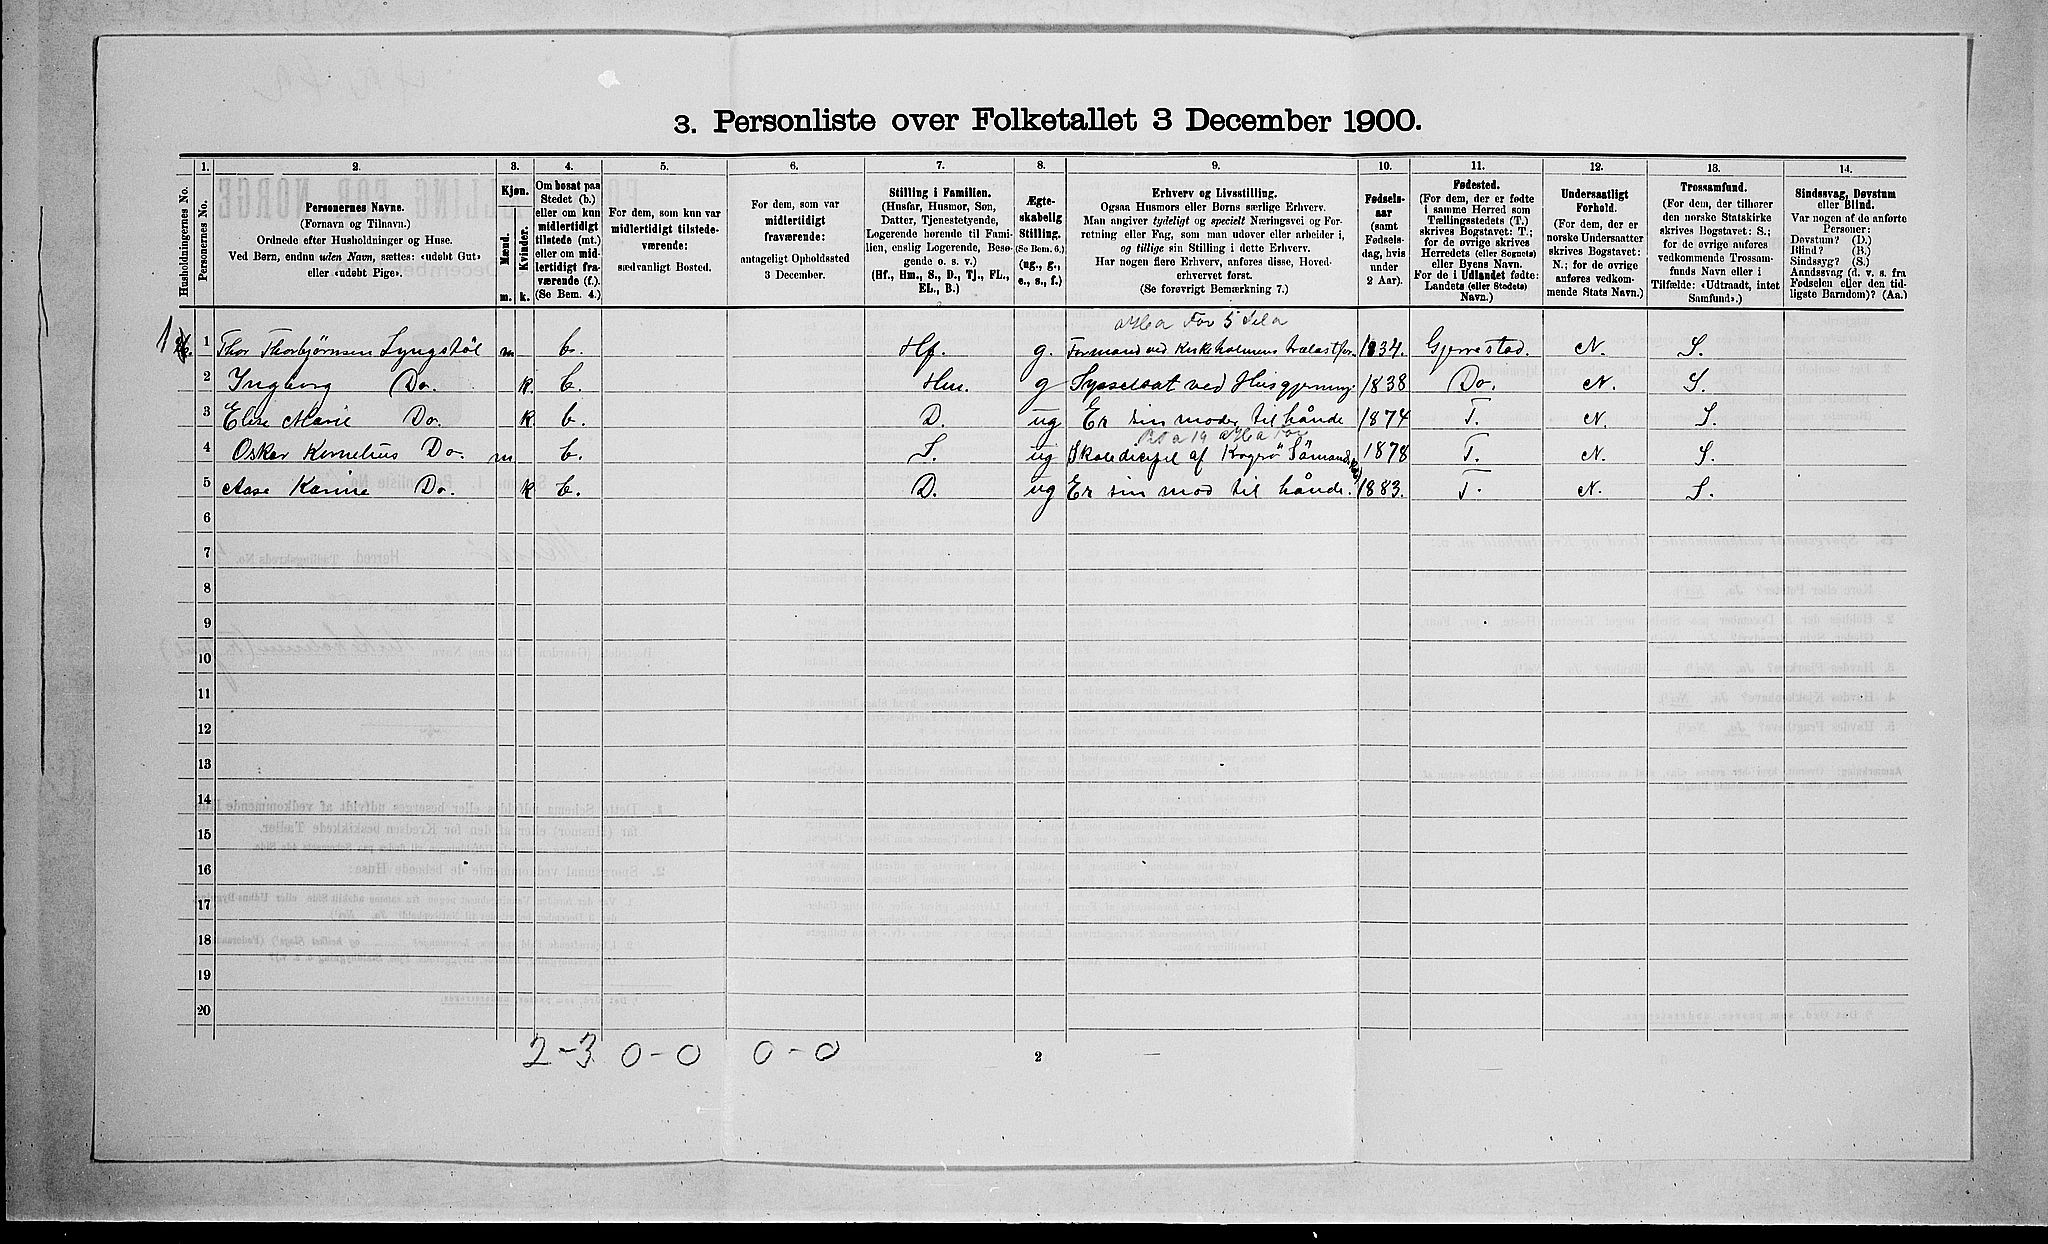 3. Personliste over Folketallet 3 December 1900.
Husholdningernes No.
1. Personernes No.
2. Personernes Navne.
(Fornavn og Tilnavn.)
Ordnede efter Husholdninger og Huse.
Ved Børn, endnu uden Navn, sættes: «udøbt Gut»
eller «udøbt Pige».
3. Kjøn.
Mænd. m.
Kvinder. k.
4. Om bosat paa
Stedet (b.)
eller om kun
midlertidigt
tilstede (mt.)
eller om mid-
lertidigt fra-
værende (f.).
(Se Bem. 4.)
5. For dem, som kun var
midlertidigt tilstede-
værende:
sædvanligt Bosted.
6. For dem, som var
midlertidigt
fraværende:
antageligt Opholdssted
3 December.
7. Stilling i Familien.
(Husfar, Husmor, Søn,
Datter, Tjenestetyende,
Logerende hørende til Fami-
lien, enslig Logerende, Besø-
gende o. s. v.)
(Hf., Hm., S., D., Tj., FL.,
EL., B.)
8. Ægte-
skabelig
Stilling.
(Se Bem. 6.)
(ug., g.,
e., s., f.)
9. Erhverv og Livsstilling.
Ogsaa Husmors eller Børns særlige Erhverv.
Man angiver tydeligt og specielt Næringsvei og For-
retning eller Fag, som man udøver eller arbeider i,
og tillige sin Stilling i dette Erhverv.
Har nogen flere Erhverv, anføres disse, Hoved-
erhvervet først.
(Se forøvrigt Bemærkning 7.)
10. Fødsels-
aar
(samt
Fødsels-
dag, hvis
under
2 Aar).
11. Fødested.
(For dem, der er fødte
i samme Herred som
Tællingsstedets (T.)
skrives Bogstavet: T.;
for de øvrige skrives
Herredets (eller Sognets)
eller Byens Navn.
For de i Udlandet fødte:
Landets (eller Stedets)
Navn.)
12. Undersaatligt
Forhold.
(For dem, der er
norske Undersaatter
skrives Bogstavet:
N.; for de øvrige
anføres vedkom-
mende Stats Navn.)
13. Trossamfund.
(For dem, der tilhører
den norske Statskirke
skrives Bogstavet: S.;
for de øvrige anføres
vedkommende Trossam-
funds Navn eller i
Tilfælde: «Udtraadt, intet
Samfund».)
14. Sindssvag, Døvstum
eller Blind.
Var nogen af de anførte
Personer:
Døvstum? (D.)
Blind? (B.)
Sindssyg? (S.)
Aandssvag (d. v. s. fra
Fødselen eller den tid-
ligste Barndom)? (Aa.)
1 1 Thor Thorbjørnsen Lyngstöl m b. Hf. g. Formand ved Kirkeholmens trælastfor. 1834. Gjerrestad. N. S.
2 Ingborg Do. k. b. Hm. g Sysselsat ved Husgjerning 1838 Do. N. S.
3 Elise Marie Do. k b. D. ug Er sin moder til hånde 1874 T. N. S.
4 Oskar Kornelius Do. m b. S. ug Skoledicipel af Kragerö Sömands 1878 T. N. S.
5 Aase Karine Do. k b. D. ug Er sin mod til hånde. 1883. T. N. S.
6
7
8
9
10
11
12
13
14
15
16
17
18
19
20
2-3 0-0 0-0
2